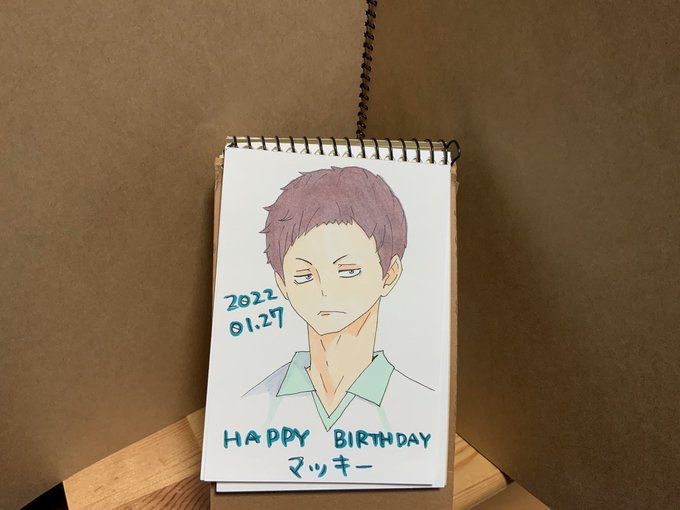 2022
01.27
HAPPY BIRTHDAY
マッキー